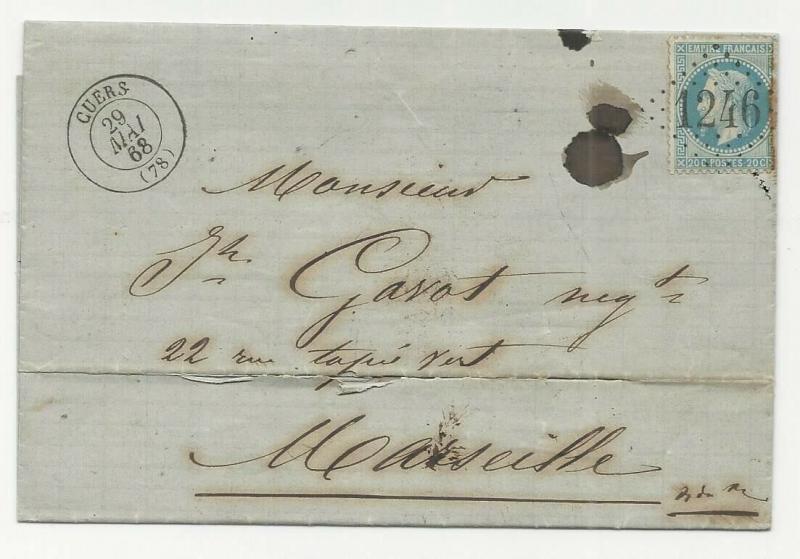 CUERS
29
MAI
68
(78)
EMPIRE FRANCAIS
1246
20 C POSTES 20 C
Monsieur
Jh Gavot negt
22 rue tapis vert
Marseille